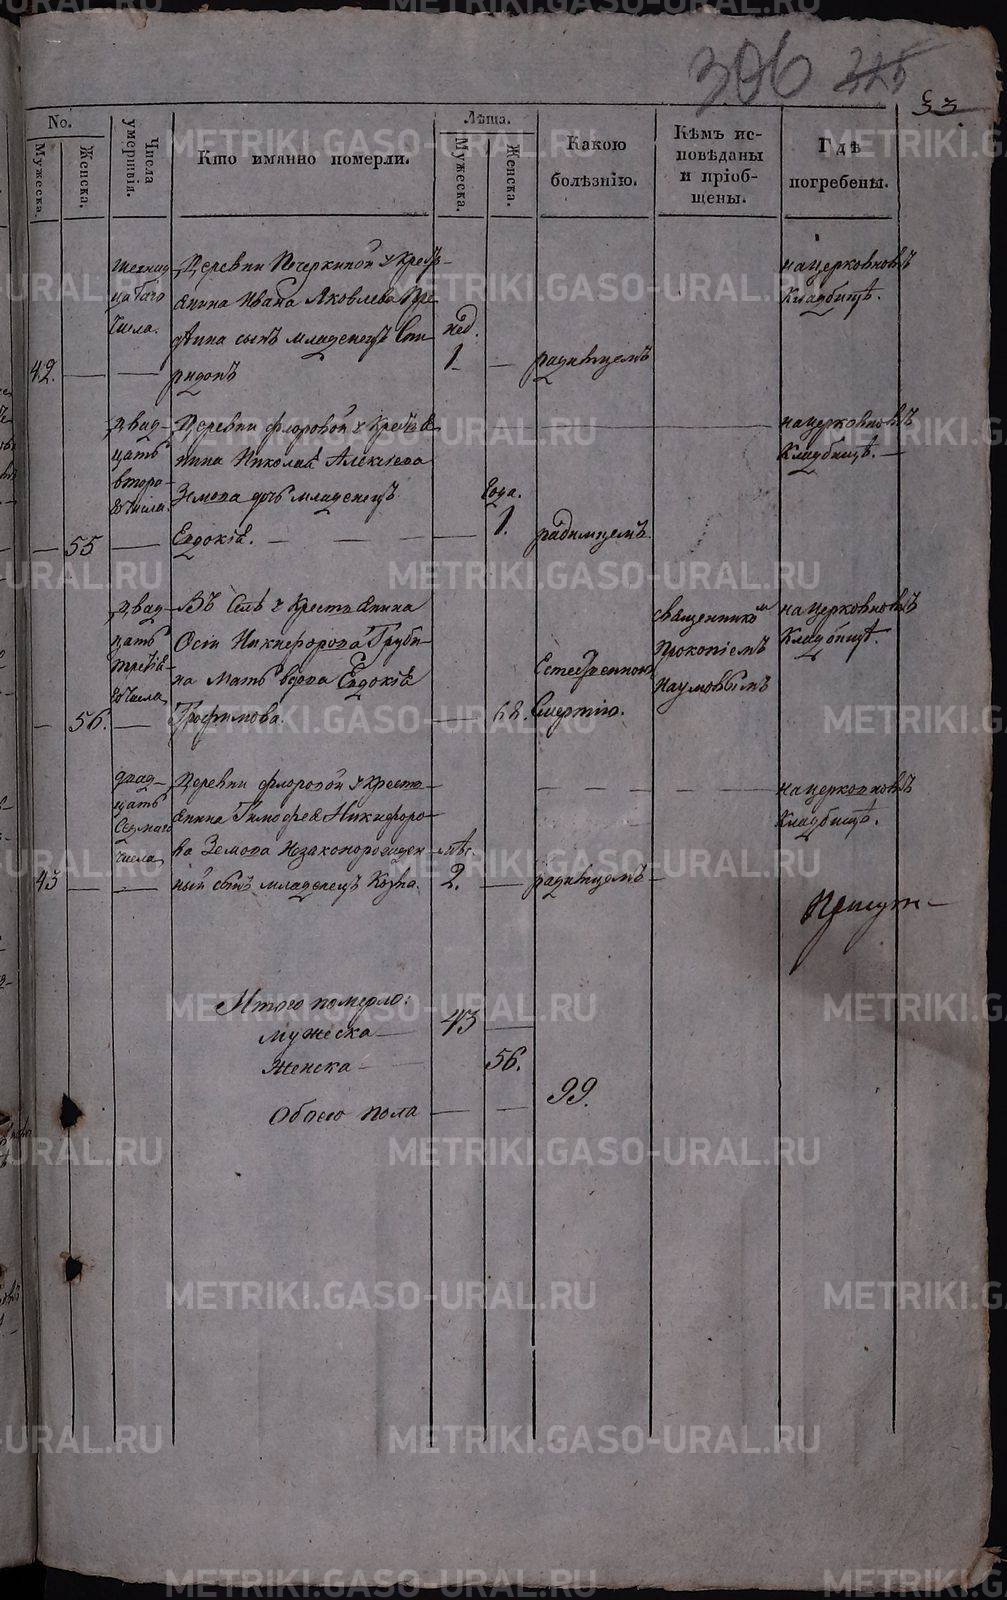 306 325
53.
No.
Мужеска.
Женска.
Числа умершихъ.
Кто имянно померли.
Лѣта.
Мужеска.
Женска.
Какою
болѣзнію.
Кѣмъ ис-
повѣданы
и пріоб-
щены.
Гдѣ
погребены.
шестнад
цатаго
Числа.
42.
Деревни Печеркиной Крестъ-
янина Ивана Яковлева
сынъ младенецъ Спи-
ридонъ
нед.
1
родимцемъ
на церковновъ
Кладбищѣ.
двад-
цать
второ-
го Числа.
55
Деревни Флоровой Крестья
нина Николая Алексѣева
Земова дочь младенецъ
Евдокія.
Года.
1.
родимцемъ
на церковновъ
Кладбищѣ.
двад-
цать
третья-
го Числа
56.
Въ Селѣ Крестьянина
Осіи Никифорова Груби-
на Мать вдова Евдокія
Трофимова.
68.
Естественною
Смертію.
священникомъ
Прокопіемъ
Наумовымъ
на церковновъ
Кладбищѣ.
двад-
цать
седмаго
числа
43
Деревни Флоровой Кресть-
янина Тимофея Никифоро-
ва Земова Незаконорожден-
ный сынъ младенецъ Козма.
мѣс.
2.
родимцемъ
на церковновъ
Кладбищѣ.
Итого померло:
Мужеска 43
Женска 56.
Обоего пола 99.
METRIKI.GASO-URAL.RU